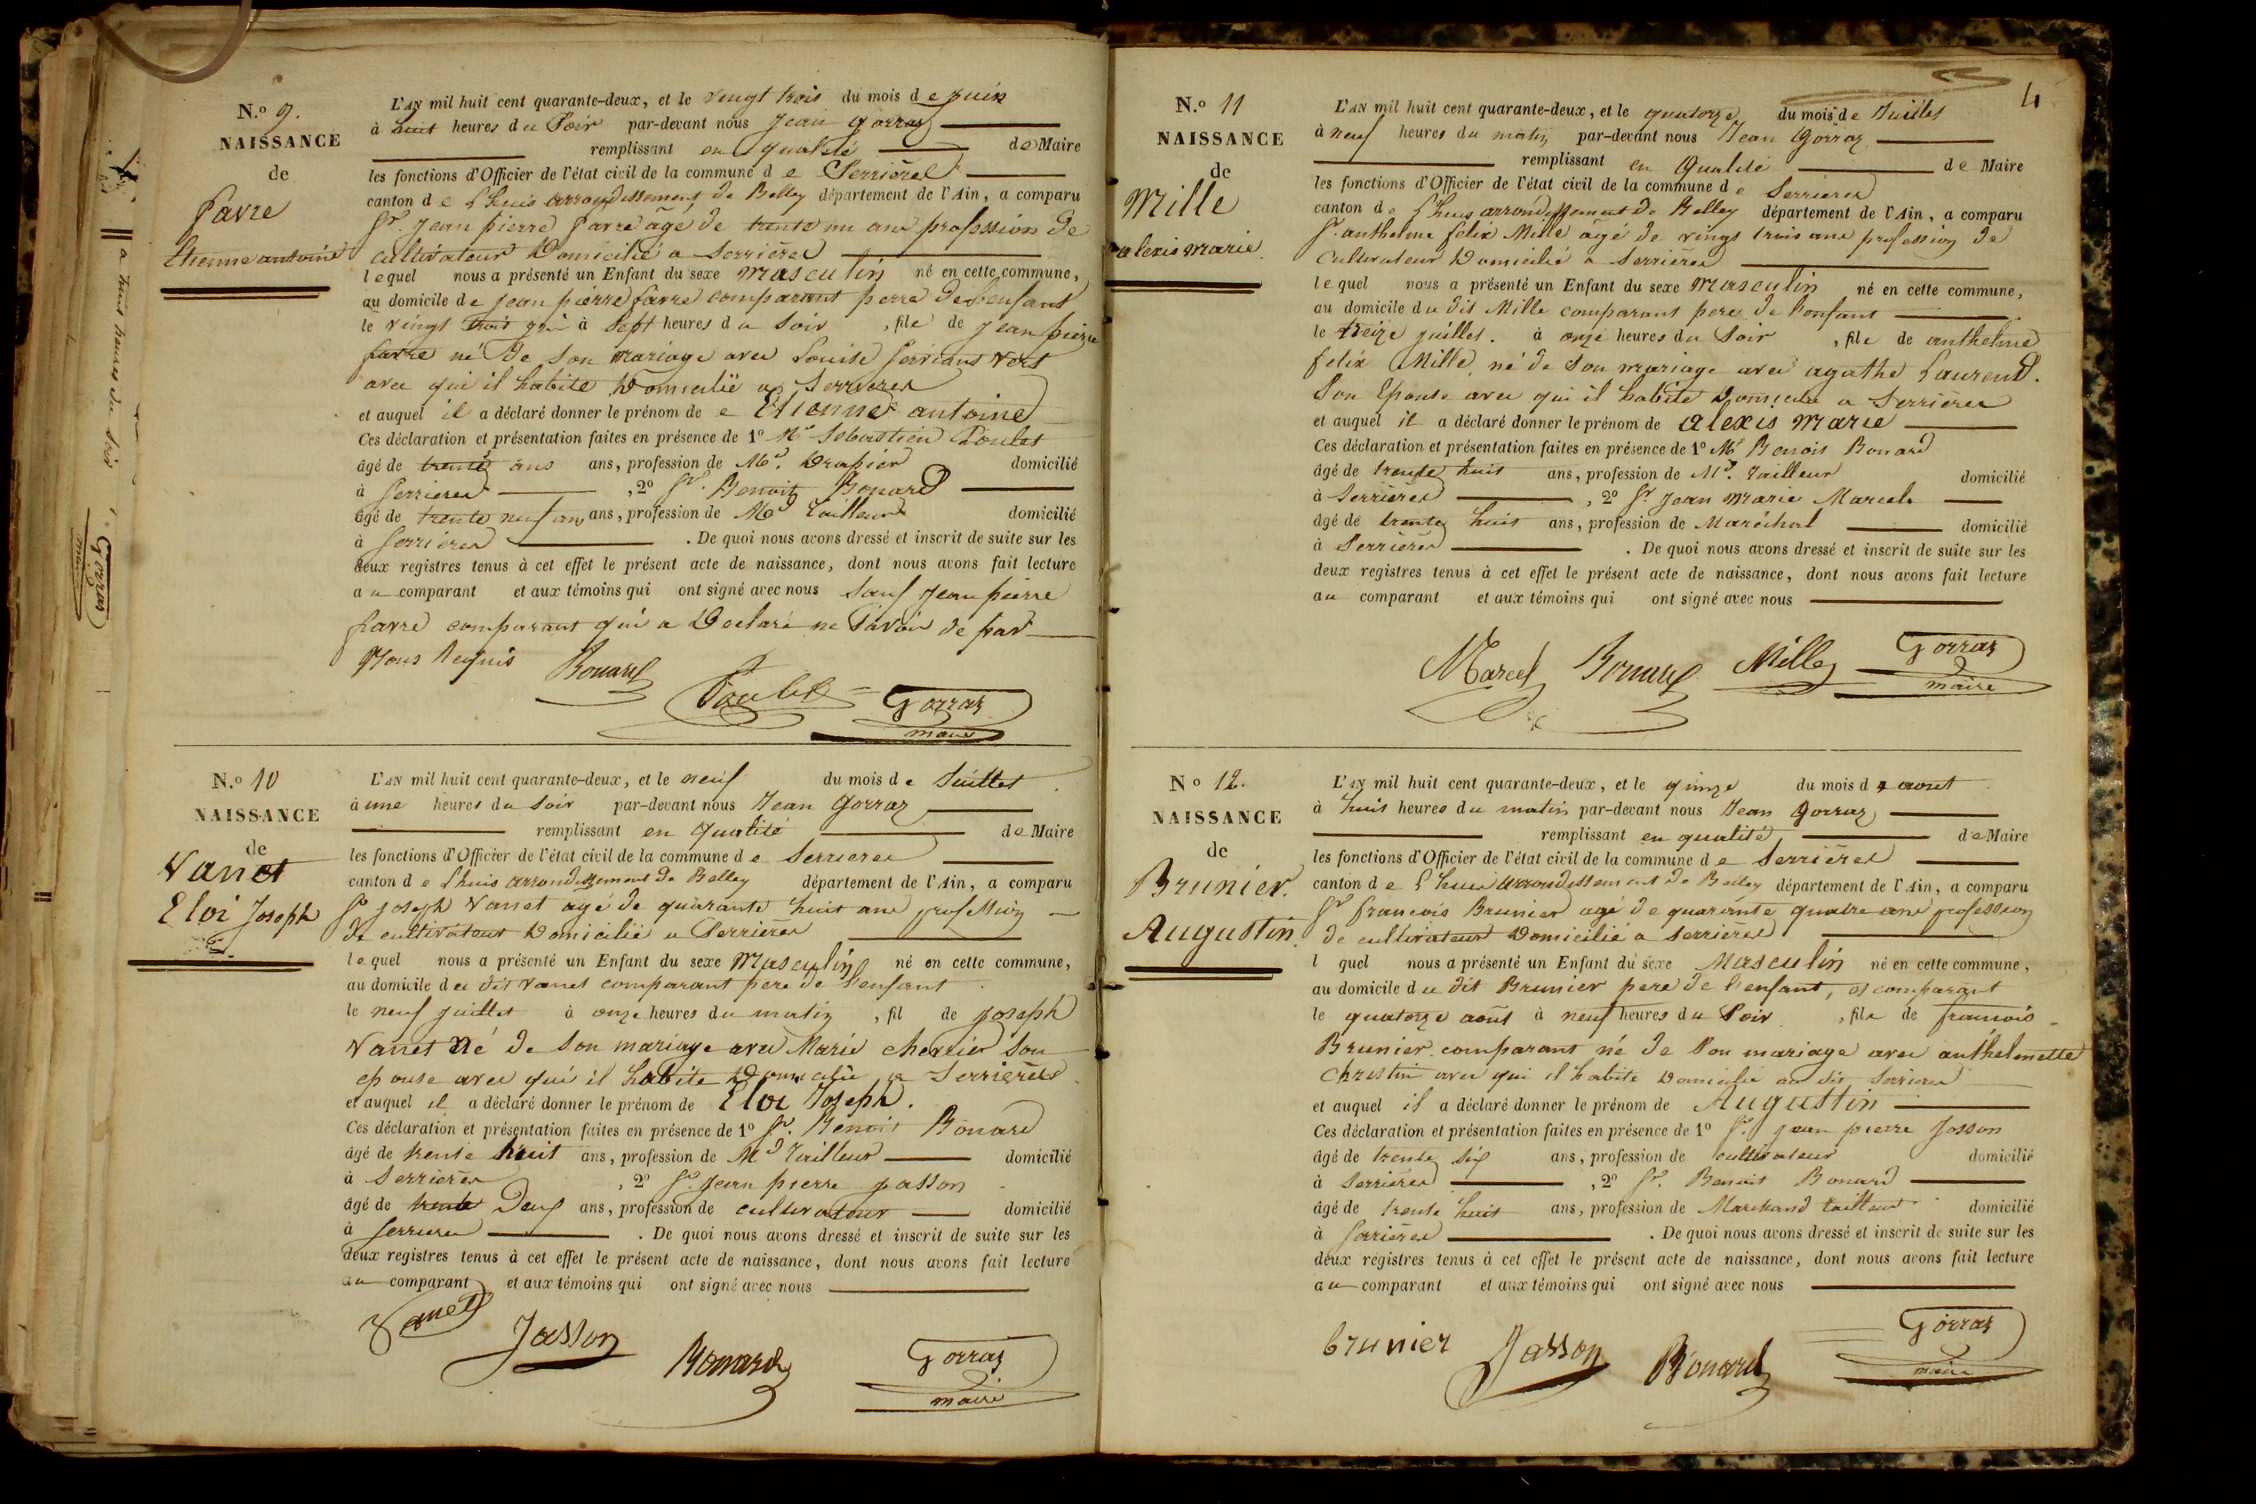 N.o 9.
NAISSANCE
de
favre
Etienne antoine
L'AN mil huit cent quarante-deux, et le vingt trois du mois de juin
à huit heures du Soir par-devant nous Jean gorraz
remplissant en qualité de Maire
les fonctions d'Officier de l'état civil de la commune de Serrieres
canton de Lhuis arrondissement de Belley département de l'Ain, a comparu
Sr. Jean pierre favre âgé de trente un ans profession de
cultivateur Domicilié a Serrieres
lequel nous a présenté un Enfant du sexe masculin né en cette commune,
au domicile de jean pierre favre comparant perre de l'enfant
le vingt trois juin à Sept heures du Soir, fils de jean pierre
favre né De Son mariage avec Louise
avec qui il habite Domicilié a Serrieres
et auquel il a déclaré donner le prénom de e Etienne antoine
Ces déclaration et présentation faites en présence de 1º Mr Sebastien Poulet
âgé de trente ans ans, profession de Md. Drapier domicilié
à Serrieres, 2º Sr. Benoit Bonard
âgé de trente neuf an ans, profession de Md Tailleur domicilié
à Serrieres. De quoi nous avons dressé et inscrit de suite sur les
deux registres tenus à cet effet le présent acte de naissance, dont nous avons fait lecture
au comparant et aux témoins qui ont signé avec nous Sauf Jean pierre
favre comparant qui a Declaré ne Savoir de par
Nous Requis Bonard
Poulet Gorraz
maire
N.o 10
NAISSANCE
de
Vanet
Eloi Joseph
L'AN mil huit cent quarante-deux, et le neuf du mois de Juillet
à une heures du Soir par-devant nous Jean Gorraz
remplissant en qualité de Maire
les fonctions d'Officier de l'état civil de la commune de Serrieres
canton de Lhuis arrondissement de Belley département de l'Ain, a comparu
Sr joseph Vanet agé de quarante huit ans profession
de cultivateur Domicilié a Serrieres
lequel nous a présenté un Enfant du sexe Masculin né en cette commune,
au domicile du dit Vanet comparant pere de l'enfant
le neuf juillet à onze heures du matin, fil de joseph
Vanet Né de Son mariage avec Marie cherrier Son
epouse avec qui il habite Domicilié a Serrieres
et auquel il a déclaré donner le prénom de Eloi Joseph.
Ces déclaration et présentation faites en présence de 1º Sr. Benoit Bonard
âgé de trente huit ans, profession de Md Tailleur domicilié
à Serrieres, 2º Sr. Jean pierre jasson
âgé de trente Deux ans, profession de cultivateur domicilié
à Serrieres. De quoi nous avons dressé et inscrit de suite sur les
deux registres tenus à cet effet le présent acte de naissance, dont nous avons fait lecture
au comparant et aux témoins qui ont signé avec nous
Vanet Jasson Bonard Gorraz
maire
4
N.o 11
NAISSANCE
de
Mille
alexis marie.
L'AN mil huit cent quarante-deux, et le quatorze du mois de Juillet
à neuf heures du matin par-devant nous Jean Gorraz
remplissant en Qualité de Maire
les fonctions d'Officier de l'état civil de la commune de Serrieres
canton de Lhuis arrondissement de Belley département de l'Ain, a comparu
Sr. anthelme felix Mille agé de vingt trois ans profession de
Cultivateur Domicilié a Serrieres
lequel nous a présenté un Enfant du sexe Masculin né en cette commune,
au domicile du dit Mille comparant pere de l'enfant
le treize juillet. à onze heures du Soir, fils de anthelme
felix Mille, né de Son mariage avec agathe Laurend.
Son Epouse avec qui il habite Domicilié a Serrieres
et auquel il a déclaré donner le prénom de alexis Marie
Ces déclaration et présentation faites en présence de 1º Mr Benoit Bonard
âgé de trente huit ans, profession de Md. Tailleur domicilié
à Serrieres, 2º Sr Jean Marie Marcel
âgé de trente huit ans, profession de Maréchal domicilié
à Serrieres. De quoi nous avons dressé et inscrit de suite sur les
deux registres tenus à cet effet le présent acte de naissance, dont nous avons fait lecture
au comparant et aux témoins qui ont signé avec nous
Marcel Bonard Mille Gorraz
maire
N.o 12.
NAISSANCE
de
Brunier.
Augustin.
L'AN mil huit cent quarante-deux, et le quinze du mois d aout
à huit heures du matin par-devant nous Jean Gorraz
remplissant en qualité de Maire
les fonctions d'Officier de l'état civil de la commune de Serrieres
canton de Lhuis arrondissement de Belley département de l'Ain, a comparu
Sr francois Brunier agé de quarante quatre ans profession
de cultivateur Domicilié a Serrieres
l quel nous a présenté un Enfant du sexe Masculin né en cette commune,
au domicile du dit Brunier pere de l'enfant, et comparant
le quatorze août à neuf heures du Soir, fils de francois
Brunier comparant né de Son mariage avec anthelmette
Christin avec qui il habite Domicilié au dit Serrieres
et auquel il a déclaré donner le prénom de Augustin
Ces déclaration et présentation faites en présence de 1º Sr. jean pierre Jasson
âgé de trente six ans, profession de cultivateur domicilié
à Serrieres, 2º Sr. Benoit Bonard
âgé de trente huit ans, profession de Marchand tailleur domicilié
à Serrieres. De quoi nous avons dressé et inscrit de suite sur les
deux registres tenus à cet effet le présent acte de naissance, dont nous avons fait lecture
au comparant et aux témoins qui ont signé avec nous
brunier Jasson Bonard Gorraz
maire